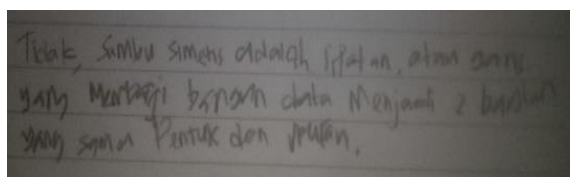 Tidak, Sumbu simetris adalah lipatan, atau garis
yang membagi bangun data menjadi 2 bagian
yang sama bentuk dan